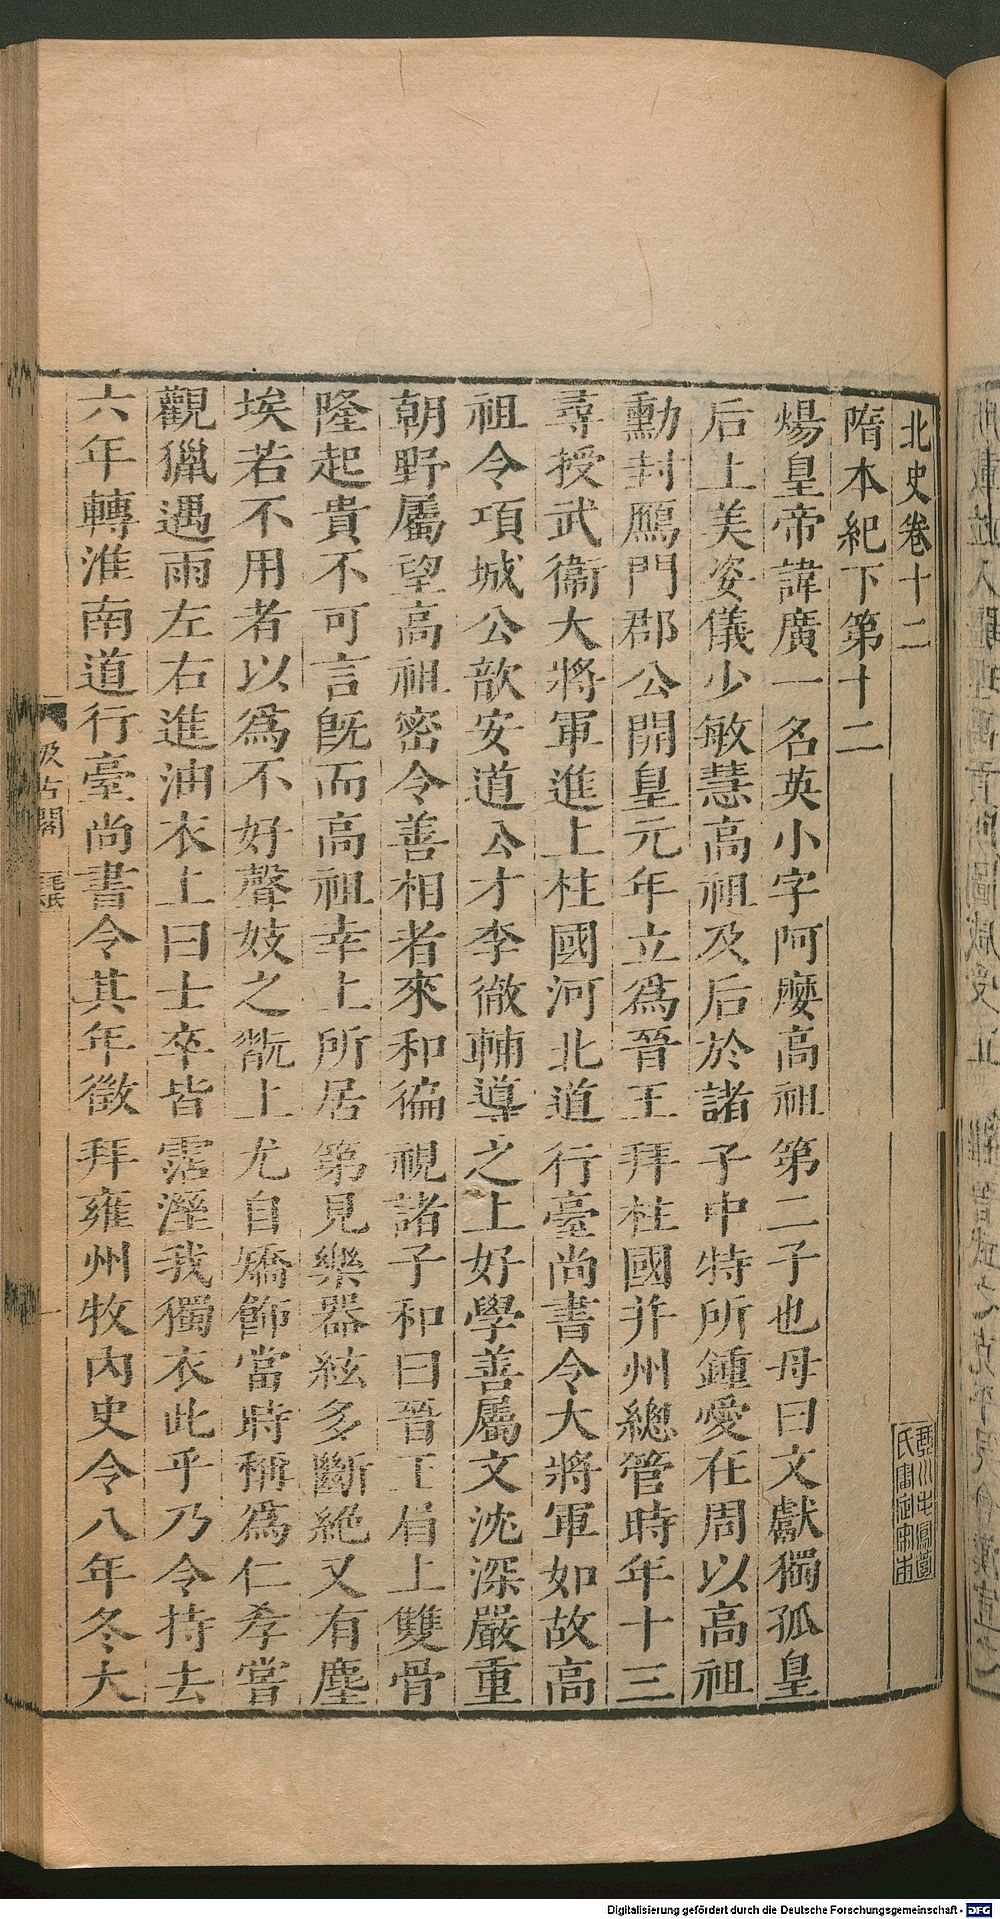 北史卷十二
隋本紀下第十二
煬皇帝諱廣一名英小字阿𡡉高祖第二子也母曰文獻獨孤皇
后上美姿儀少敏慧高祖及后於諸子中特所鍾愛在周以高祖
勳封鴈門郡公開皇元年立爲晉王拜柱國幷州總管時年十三
尋授武衞大將軍進上柱國河北道行臺尚書令大將軍如故高
祖令項城公歆安道公才李徹輔導之上好學善屬文沈深嚴重
朝野屬望高祖密令善相者來和徧視諸子和曰晉王眉上雙骨
隆起貴不可言旣而高祖幸上所居第見樂器絃多斷絕又有塵
埃若不用者以爲不好聲妓之翫上尤自矯飾當時稱爲仁孝嘗
觀獵遇雨左右進油衣上曰士卒皆霑溼我獨衣此乎乃令持去
六年轉淮南道行臺尚書令其年徵拜雍州牧內史令八年冬大
汲古閣
毛氏
一
Digitalisierung gefördert durch die Deutsche Forschungsgemeinschaft - DFG